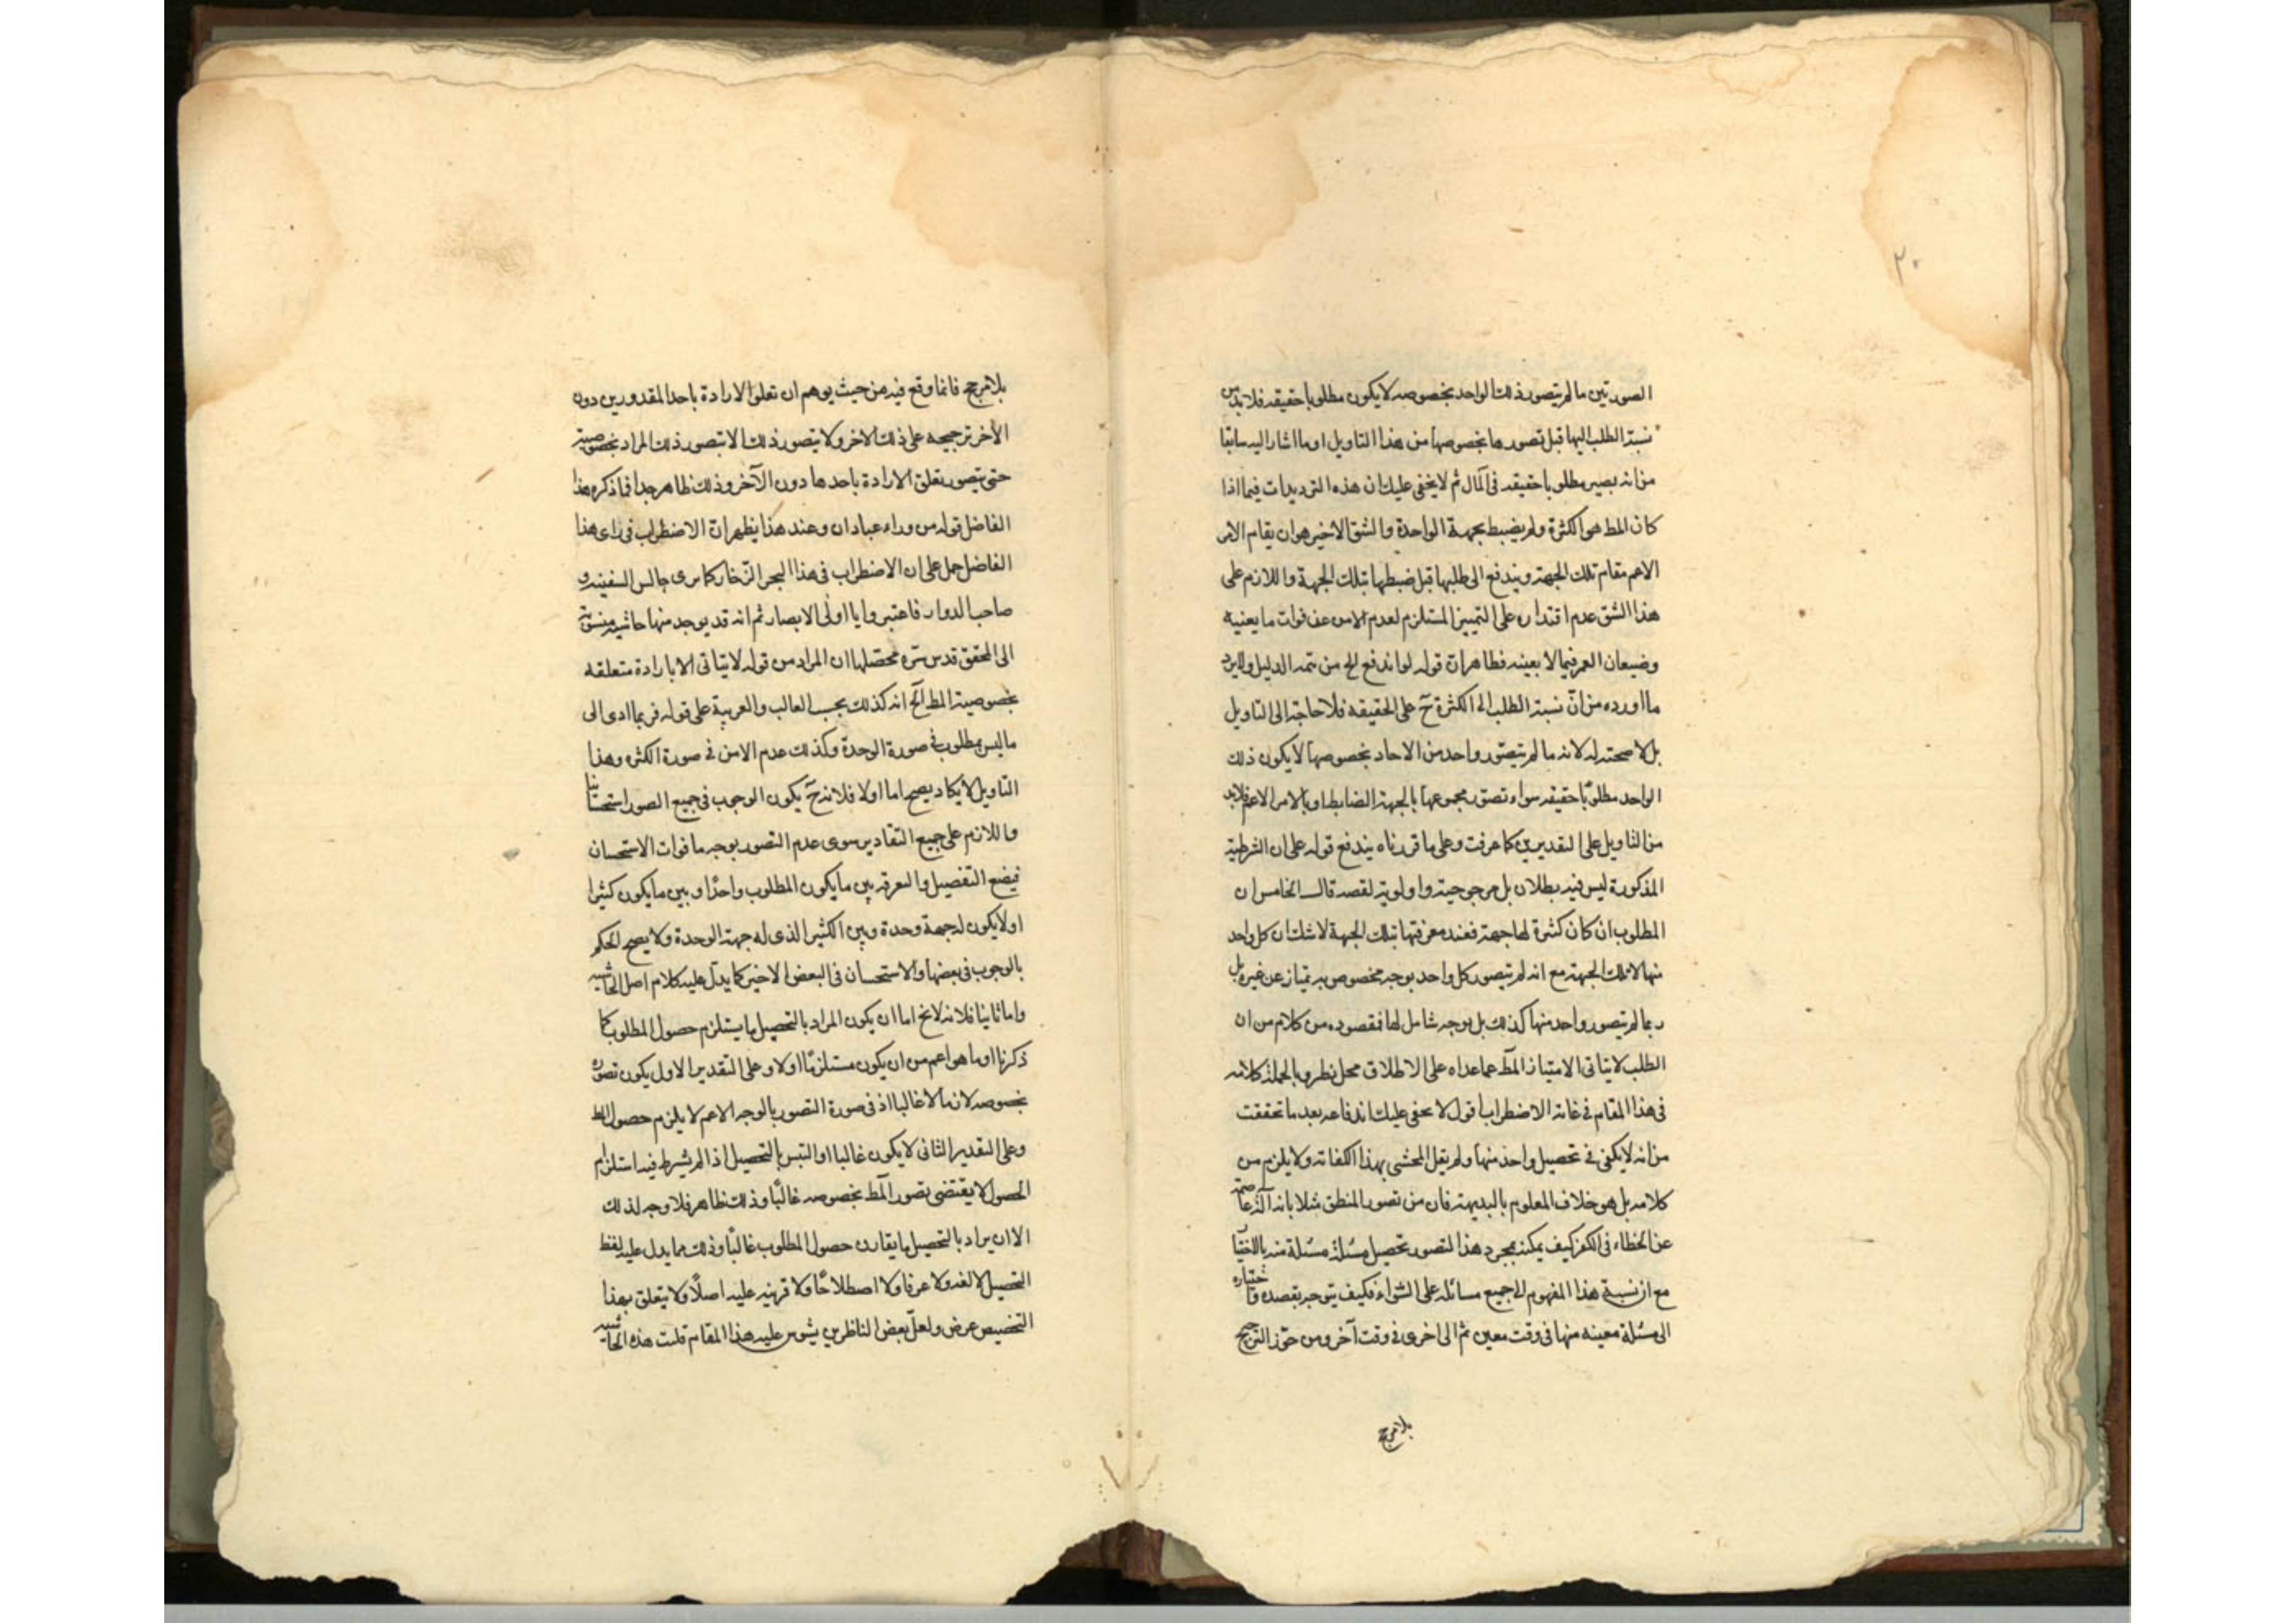 ٣٠
الصورتين ما لم يتصور ذلك الواحد بخصوصه لا يكون مطلوبا حقيقه فلا بد من
نسبة الطلب اليها قبل تصورها بخصوصها من هذا التاويل او ما اشار اليه سابقا
من انه يصير مطلوبا حقيقه فى المآل ثم لا يخفى عليك ان هذه الترديدات فيما اذا
كان المط هو الكثرة ولم يضبط بجهة الواحدة والشق الاخير هو ان يقام الامر
الاعم مقام تلك الجهة ويندفع الى طلبها قبل ضبطها بتلك الجهة واللازم على
هذا الشق عدم اقتداره على التمييز المستلزم لعدم الامن عن فوات ما يعنيه
وضيعان العمر فيما لا يعنيه فظاهر ان قوله لو اندفع الخ من تتمه الدليل ولا يرد
ما اورده من انّ نسبة الطلب الى الكثرة ح على الحقيقه فلا حاجة الى التاويل
بل لا صحة له لانه ما لم يتصوّر واحد من الاحاد بخصوصها لا يكون ذلك
الواحد مطلوبًا حقيقه سواء تصور مجموعها بالجهة الضابطة او بالامر الاعم فلا بد
من التاويل على التقديرين كما عرفت وعلى ما قررناه يندفع قوله على ان الشرطية
المذكورة ليس فيه بطلان بل مرجوحية واولوية لقصد قال الخامس ان
المطلوب ان كان كثرة لها جهة فعند معرفتها بتلك الجهة لا شك ان كل واحد
منها لا تلك الجهة مع انه لم يتصور كل واحد بوجه مخصوص به يمتاز عن غيره بل
ربما لم يتصور واحد منها كذلك بل بوجه شامل لها فمقصوده من كلام من ان
الطلب لا يتاتى الا بامتياز المط عما عداه على الاطلاق محل نظر وبالجملة كلامه
فى هذا المقام فى غاية الاضطراب اقول لا يخفى عليك اندفاعه بعد ما تحققت
من انه لا يكفى فى تحصيل واحد منها ولم يقل المحشى بهذا الكفاته ولا يلزم من
كلامه بل هو خلاف المعلوم بالبديهة فان من تصور المنطق مثلا بانه آلة عاصمة
عن الخطاء فى الفكر كيف يمكنه بمجرد هذا التصور تحصيل مسئلة مسئلة منه بالاختيار
مع ان نسبة هذا المفهوم الى جميع مسائله على السّواء فكيف يتوجه بقصده واختياره
الى مسئلة معينه منها فى وقت معين ثم الى اخرى فى وقت آخر ومن جوّز الترجيح
بلا مرجح
بلا مرجح فانما وقع فيه من حيث يوهم ان تعلق الارادة باحد المقدورين دون
الأخر ترجيحه على ذلك الاخر ولا يتصور ذلك الا بتصور ذلك المراد بخصوصيته
حتى يتصور تعلق الارادة باحدها دون الآخر وذلك ظاهر جدا فما ذكره هذا
الفاضل قوله من وراء عبادان وعند هذا يظهر انّ الاضطراب فى راى هذا
الفاضل حمل على ان الاضطراب فى هذا البحر الزّخار كما يرى جالس السفينه و
صاحب الدوار فاعتبروا يا اولى الابصار ثم انه قد يوجد منها حاشيه منسوبة
الى المحقق قدس سره محصّلها ان المراد من قوله لا يتاتى الا بارادة متعلقه
بخصوصية المط الخ انه كذلك بحسب الغالب والعربية على قوله فربما ادى الى
ما ليس بمطلوب فى صورة الوحدة وكذلك عدم الامن فى صورة الكثره وهذا
التاويل لا يكاد يصح اما اولا فلانه ح يكون الوجوب فى جميع الصور استحسانيا
واللازم على جميع التقادير سوى عدم التصور بوجه ما فوات الاستحسان
فيضع التفصيل والتعرقه بين ما يكون المطلوب واحدًا وبين ما يكون كثيرا
اولا يكون له جهة وحدة وبين الكثير الذى له جهة الوحدة ولا يصح الحكم
بالوجوب فى بعضها والاستحسان فى البعض الاخير كما يدلّ عليه كلام اصل الحاشيه
واما ثانيا فلانه لا يخ اما ان يكون المراد بالتحصيل ما يستلزم حصول المطلوب كما
ذكرنا او ما هو اعم من ان يكون مستلزمًا اولا وعلى التقدير الاول يكون تصوره
بخصوصه لازما لا غالبا اذ فى صورة التصور بالوجه الاعم لا يلزم حصول المط
وعلى التقدير الثانى لا يكون غالبا او التبس بالتحصيل اذا لم يشترط فيه استلزام
الحصول لا يقتضى تصور المط بخصوصه غالبًا وذلك ظاهر فلا وجه لذلك
الا ان يراد بالتحصيل ما يقارن حصول المطلوب غالبًا وذلك مما يدل عليه لفظ
التحصيل لا لغه ولا عرفا ولا اصطلاحًا ولا قرينه عليه اصلاً ولا يتعلق بهذا
التخصيص عرض ولعلّ بعض الناظرين يشوس عليه هذا المقام قلت هذه الحاشيه